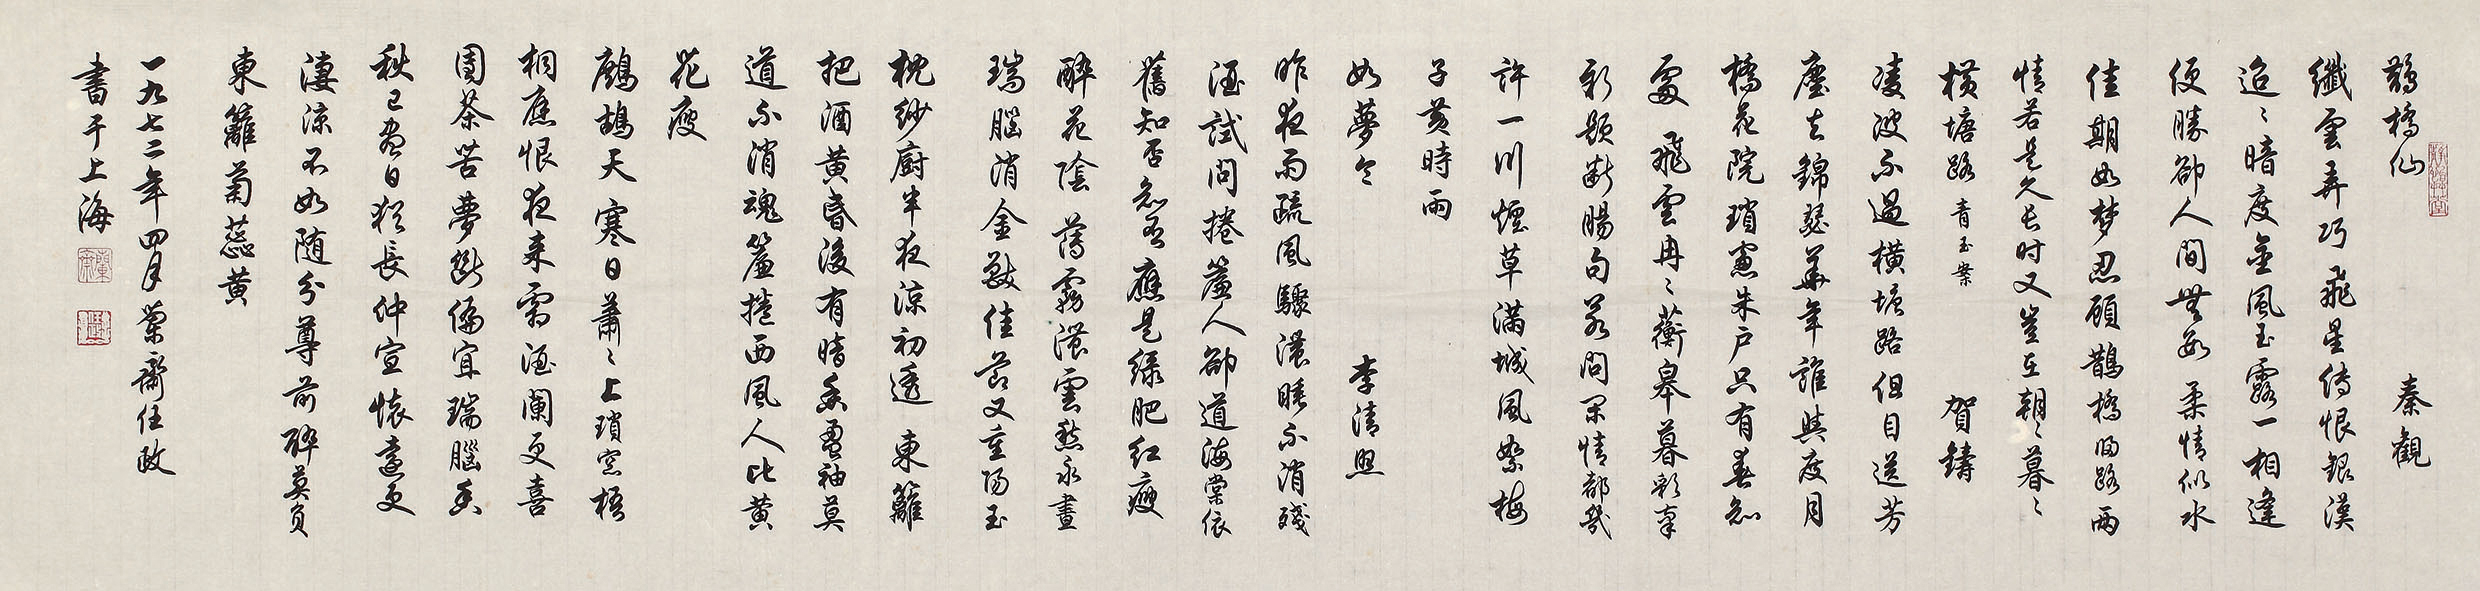 鵲橋仙 秦觀
纖雲弄巧飛星傳恨銀漢
迢〻暗度金風玉露一相逢
便勝卻人間無數柔情似水
佳期如梦忍顧鵲橋歸路兩
情若是久長时又豈在朝〻暮〻
橫塘路 青玉案 賀鑄
凌波不過橫塘路但目送芳
塵去錦瑟華年誰與度月
橋花院瑣窗朱户只有春知
處飛雲冉〻蘅皋暮彩筆
新題斷腸句若問閑情都幾
許一川煙草滿城風絮梅
子黃時雨
如夢令 李清照
昨夜雨疏風驟濃睡不消殘
酒試問捲簾人卻道海棠依
舊知否知否應是綠肥紅瘦
醉花陰 薄霧濃雲愁永晝
瑞腦消金獸佳節又重陽玉
枕紗廚半夜涼初透東籬
把酒黃昏後有暗香盈袖莫
道不消魂簾捲西風人比黃
花瘦
鷓鴣天 寒日蕭〻上瑣窗梧
桐應恨夜來霜酒闌更喜
團茶苦夢斷偏宜瑞腦香
秋已盡日猶長仲宣懷遠更
淒涼不如随分尊前醉莫負
東籬菊蕊黃
一九七二年四月蘭齋任政
書于上海